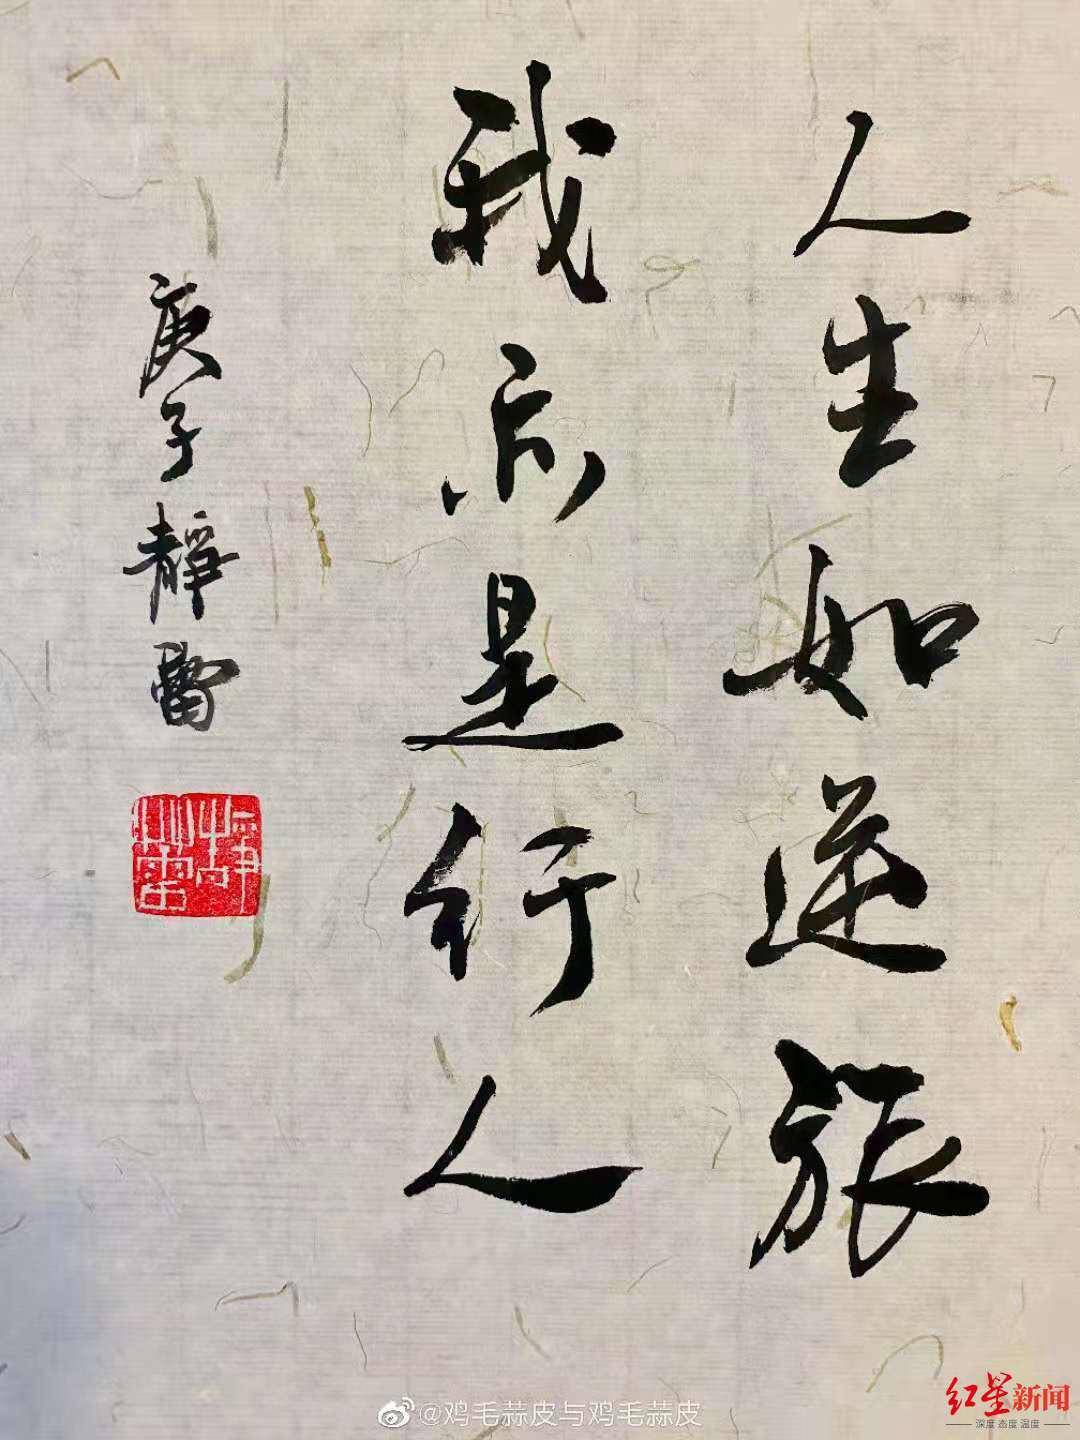 人生如逆旅
我亦是行人
庚子靜蕾
靜蕾
@鸡毛蒜皮与鸡毛蒜皮
红星新闻
深度 态度 温度